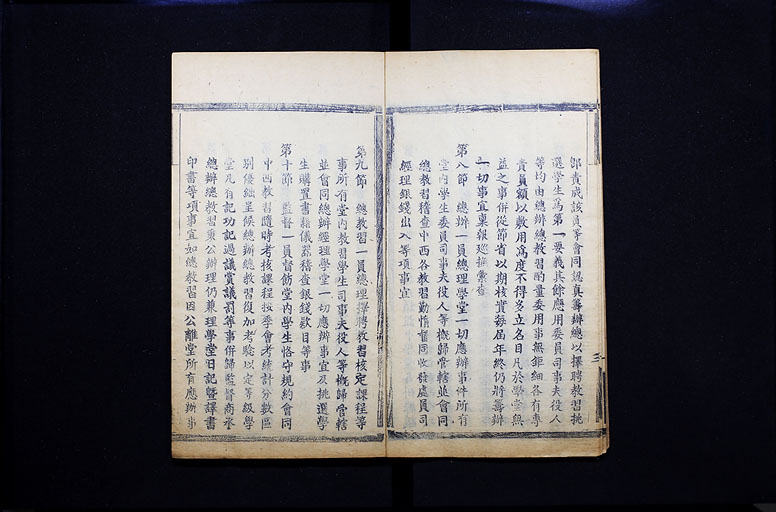 鄒貴成該員等會同認真籌辦總以擇聘教習挑
選學生為第一要義其餘應用委員司事夫役人
等均由總辦總教習酌量委用事無鉅細各有專
責員額以敷用為度不得多立名目凡於學堂無
益之事併從節省以期核實每屆年終仍將籌辦
一切事宜稟報巡撫彙查
第八節 總辦一員總理學堂一切應辦事件所有
堂內學生委員司事夫役人等概歸管轄並會同
總教習稽查中西各教習勤惰督同收發處員司
經理銀錢出入等項事宜
第九節 總教習一員總理擇聘教習核定課程等
事所有堂內教習學生司事夫役人等概歸管轄
並會同總辦經理學堂一切應辦事宜及挑選學
生購置書籍儀器稽查銀錢款目等事
第十節 監督一員督飭堂內學生恪守規約會同
中西教習隨時考核課程按季會考統計分數區
別優絀呈候總辦總教習復加考驗以定等級學
堂凡有記功記過議賞議罰等事併歸監督商承
總辦總教習秉公辦理仍兼理學堂日記暨譯書
印書等項事宜如總教習因公離堂所有應辦事
三